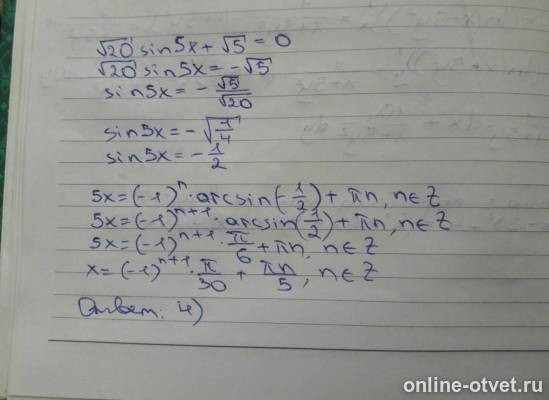 √20 sin5x + √5 = 0
√20 sin5x = -√5
sin5x = - √5/√20
sin5x = -√(1/4)
sin5x = - 1/2
5x = (-1)ⁿ · arcsin(-1/2) + πn, n∈Z
5x = (-1)ⁿ⁺¹ · arcsin(1/2) + πn, n∈Z
5x = (-1)ⁿ⁺¹ · π/6 + πn, n∈Z
x = (-1)ⁿ⁺¹ · π/30 + πn/5, n∈Z
Ответ: 4)
online-otvet.ru